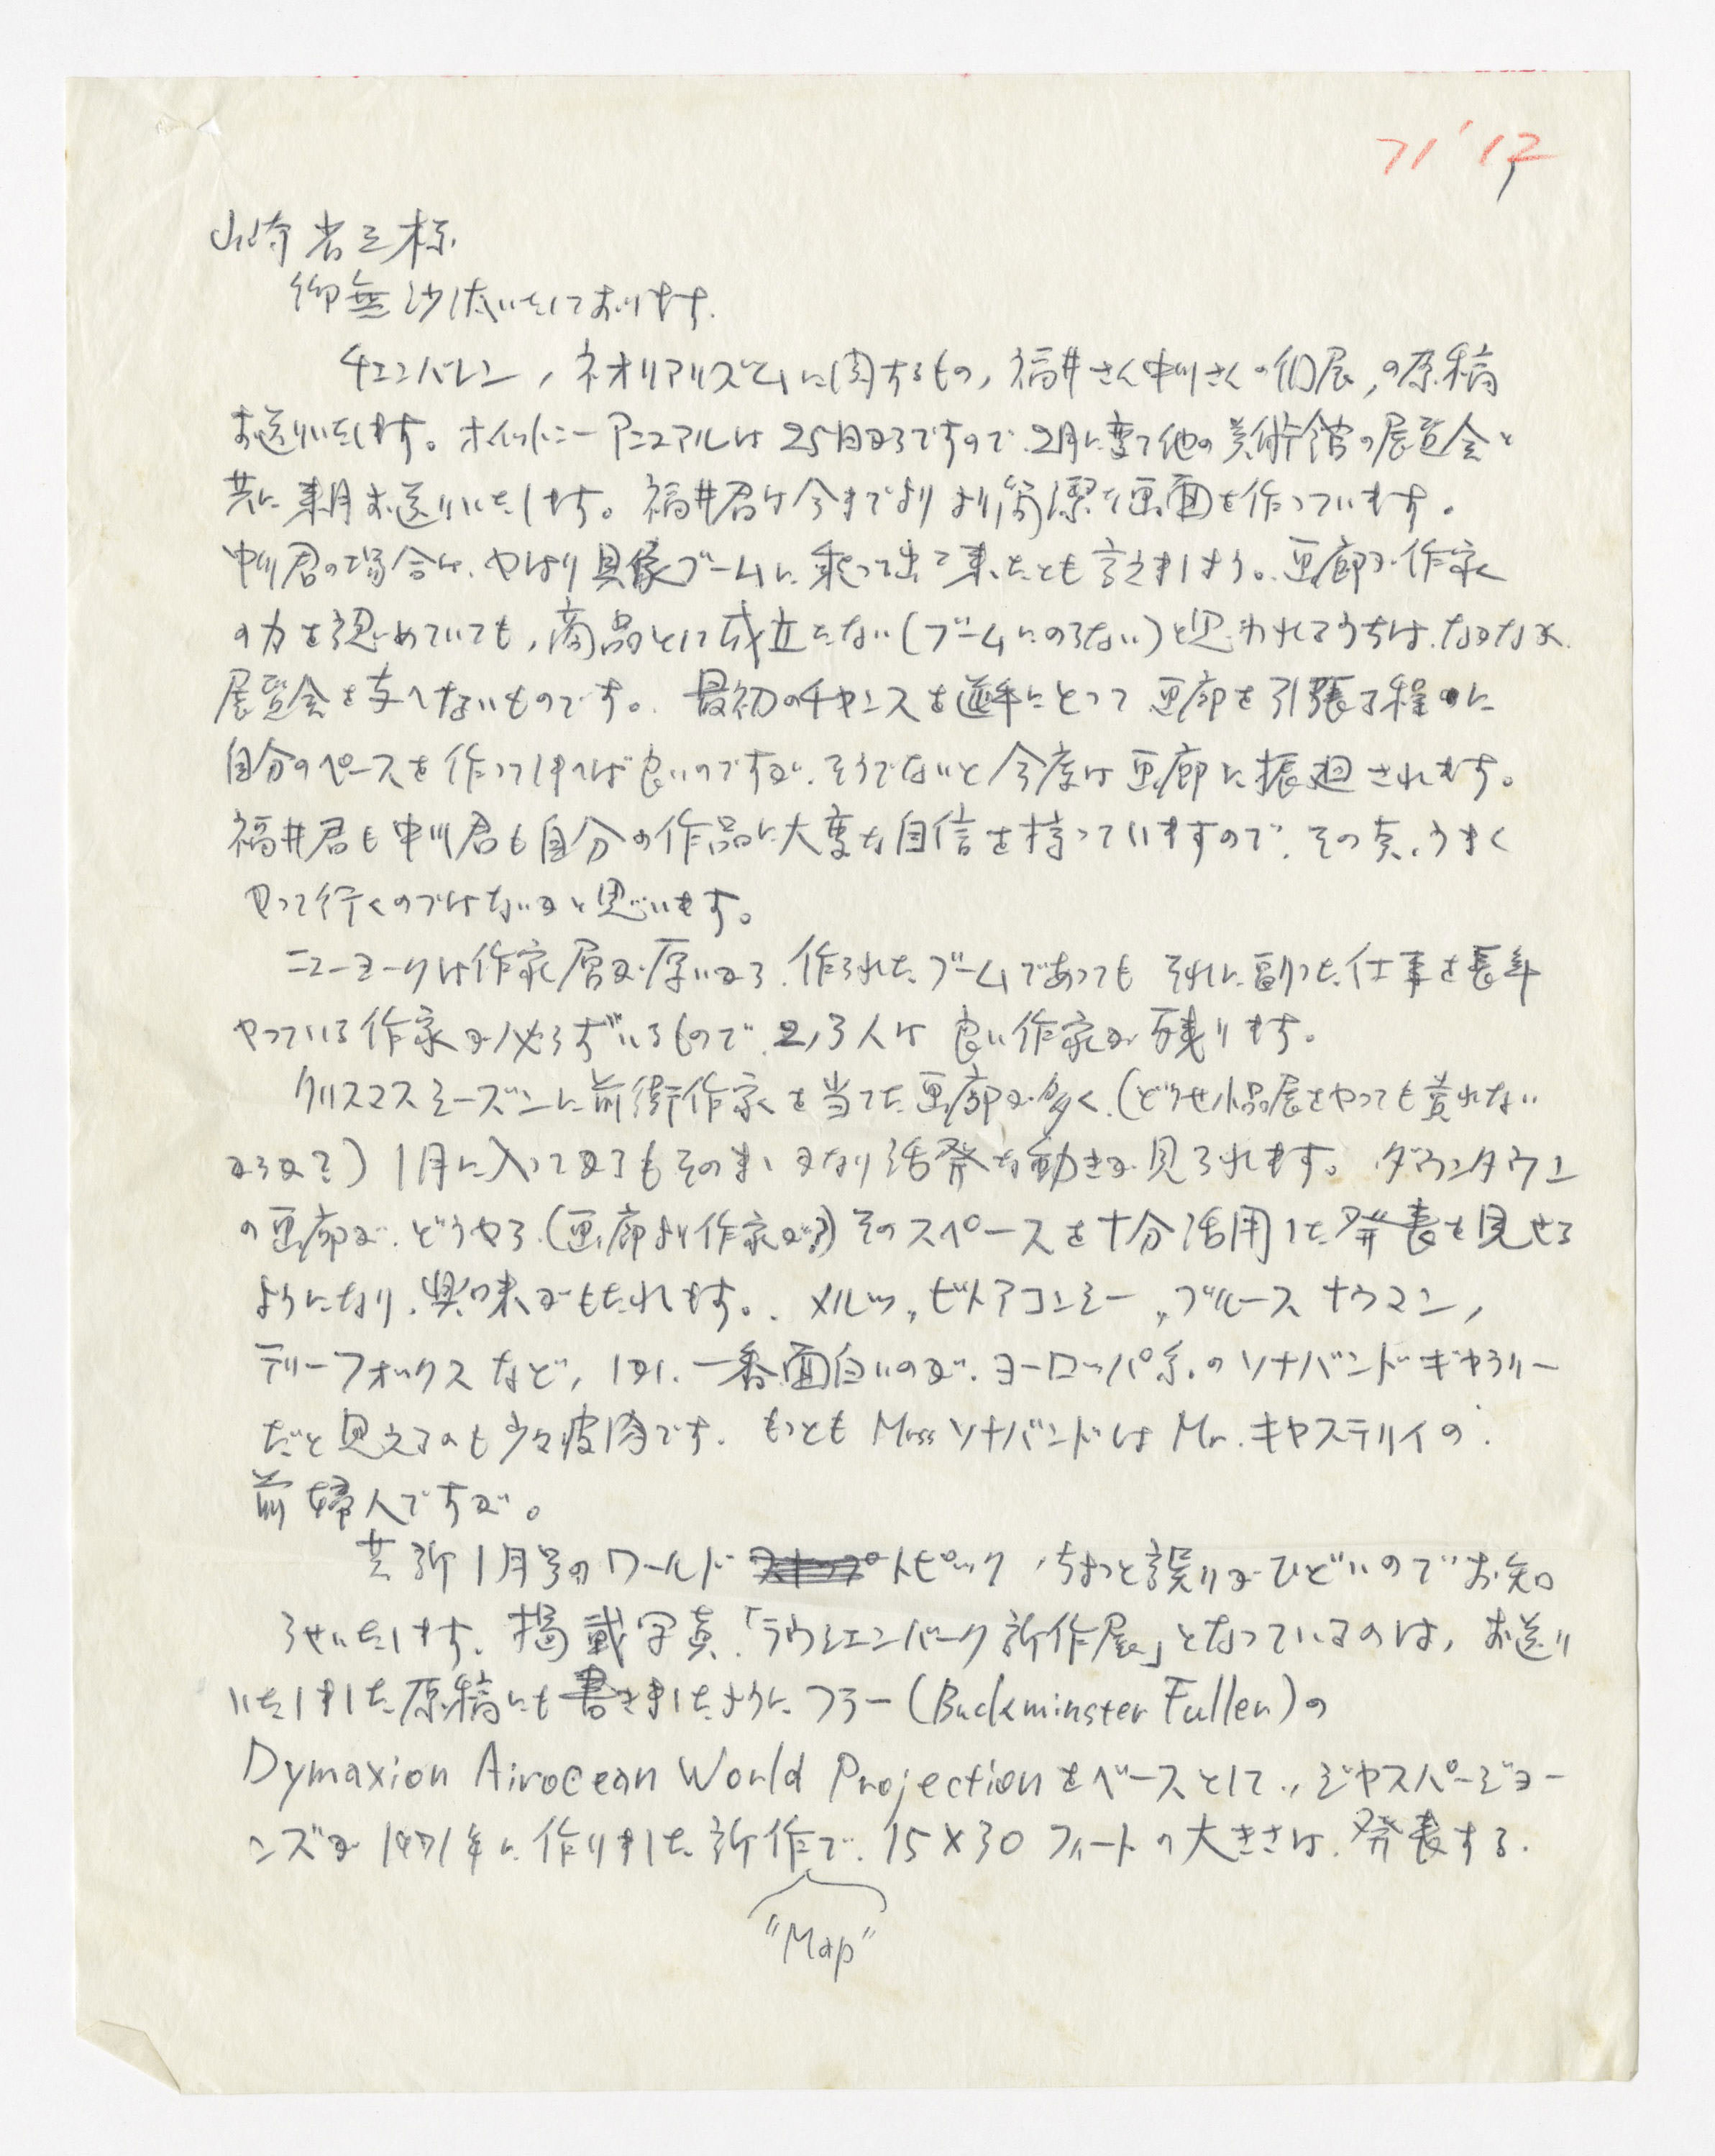 71' 12
1
山崎省三様
御無沙汰いたしております.
チェンバレン, ネオリアリズムに関するもの, 福井さん中川さんの個展,の原稿
お送りいたします。ホイットニーアニュアルは25日からですので2月に変て他の美術館の展覧会と
共に来月お送りいたします。福井君は今までより より簡潔な画面を作っています。
中川君の場合は、やはり具象ブームに乗って出て来たとも言えましょう。画廊が作家
の力を認めていても,商品として成立たない(ブームにのらない)と思われるうちは、なかなか
展覧会を与へないものです。最初のチャンスを逆手にとって画廊を引張る程に
自分のペースを作って行ければ良いのですが、そうでないと今度は画廊に振廻されます。
福井君も中川君も自分の作品に大変な自信を持っていますので、その点、うまく
やって行くのではないかと思います。
ニューヨークは作家層が厚いから、作られたブームであってもそれに副った仕事を長年
やっている作家が必らずいるもので、2,3人は良い作家が残ります。
クリスマスシーズンに前衛作家を当てた画廊が多く、(どうせ小品展をやっても売れない
からか?) 1月に入ってからもそのまゝかなり活発な動きが見られます。ダウンタウン
の画廊が、どうやら(画廊より作家が?)そのスペースを十分活用した発表を見せる
ようになり、興味がもたれます。メルツ,,ビトアコンシー,,ブルース ナウマン,
テリーフォックスなど, しかし、一番面白いのが、ヨーロッパ系のソナバンドギャラリー
だと見えるのも少々皮肉です。もっともMrssソナバンドはMr.キャステリイの
前婦人ですが。
芸新1月号のワールドトピック,ちょっと誤りがひどいのでお知
らせいたします。掲載写真「ラウシェンバーク新作展」となっているのは, お送り
いたしました原稿にも書きましたようにフラー(Buckminster Fuller)の
Dymaxion Airocean World Projectionをベースとして,,ジャスパージョー
ンズが1971年に作りました新作で、15×30フィートの大きさは、発表する.
"Map"